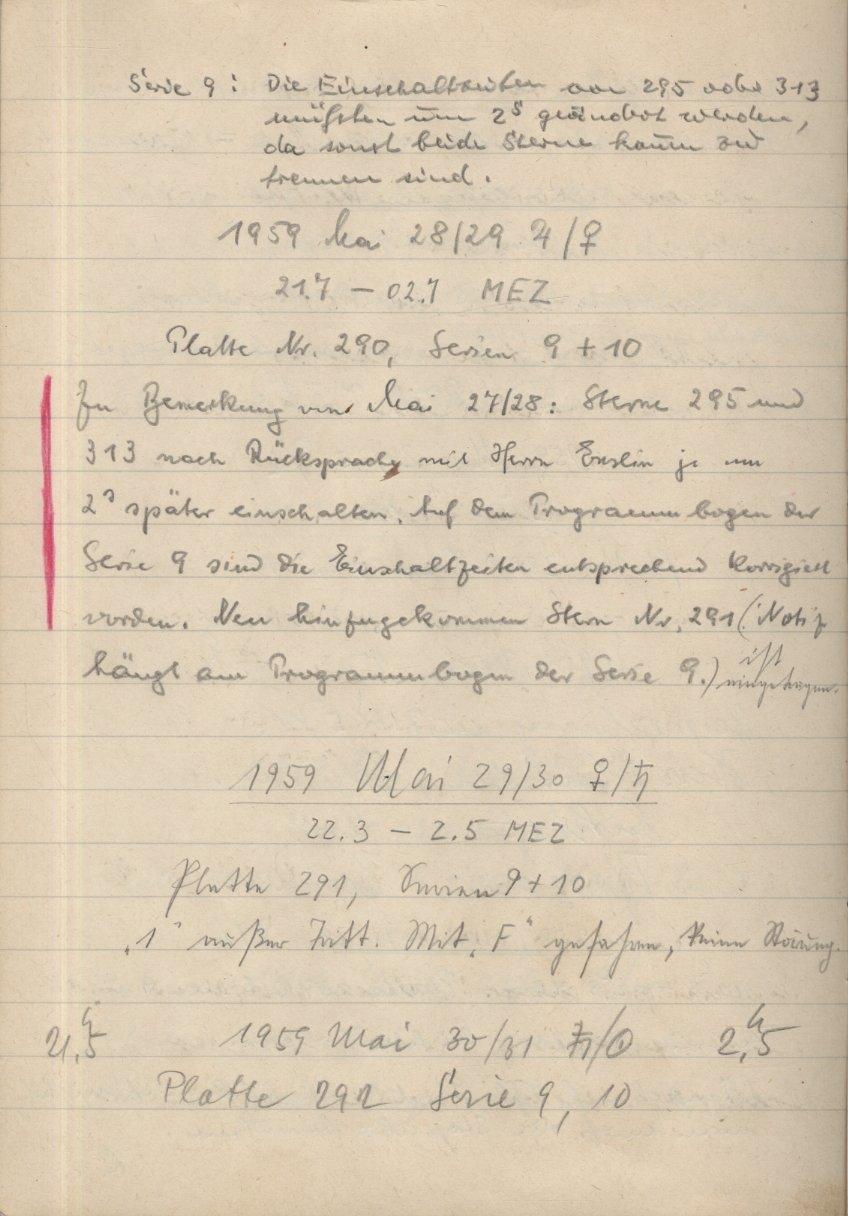 Serie 9: Die Einschaltzeiten von 295 oder 313
müßten um 2ˢ geändert werden,
da sonst beide Sterne kaum zu
trennen sind.
1959 Mai 28/29 ♃/♀
21.7 — 02.7 MEZ
Platte Nr. 290, Serien 9 + 10
Zu Bemerkung vom Mai 27/28: Sterne 295 und
313 nach Rücksprache mit Herrn Enslin je um
2ˢ später einschalten. Auf dem Programmbogen der
Serie 9 sind die Einschaltzeiten entsprechend korrigiert
worden. Neu hinzugekommen Stern Nr. 291 (Notiz
hängt am Programmbogen der Serie 9.) ist
eingetragen.
1959 Mai 29/30 ♀/♄
22.3 — 2.5 MEZ
Platte 291, Serien 9 + 10
„1“ außer Tritt. Mit „F“ gefahren, keine Störung.
21,ʰ5 1959 Mai 30/31 ♄/☉ 2,ʰ5
Platte 292 Serie 9, 10